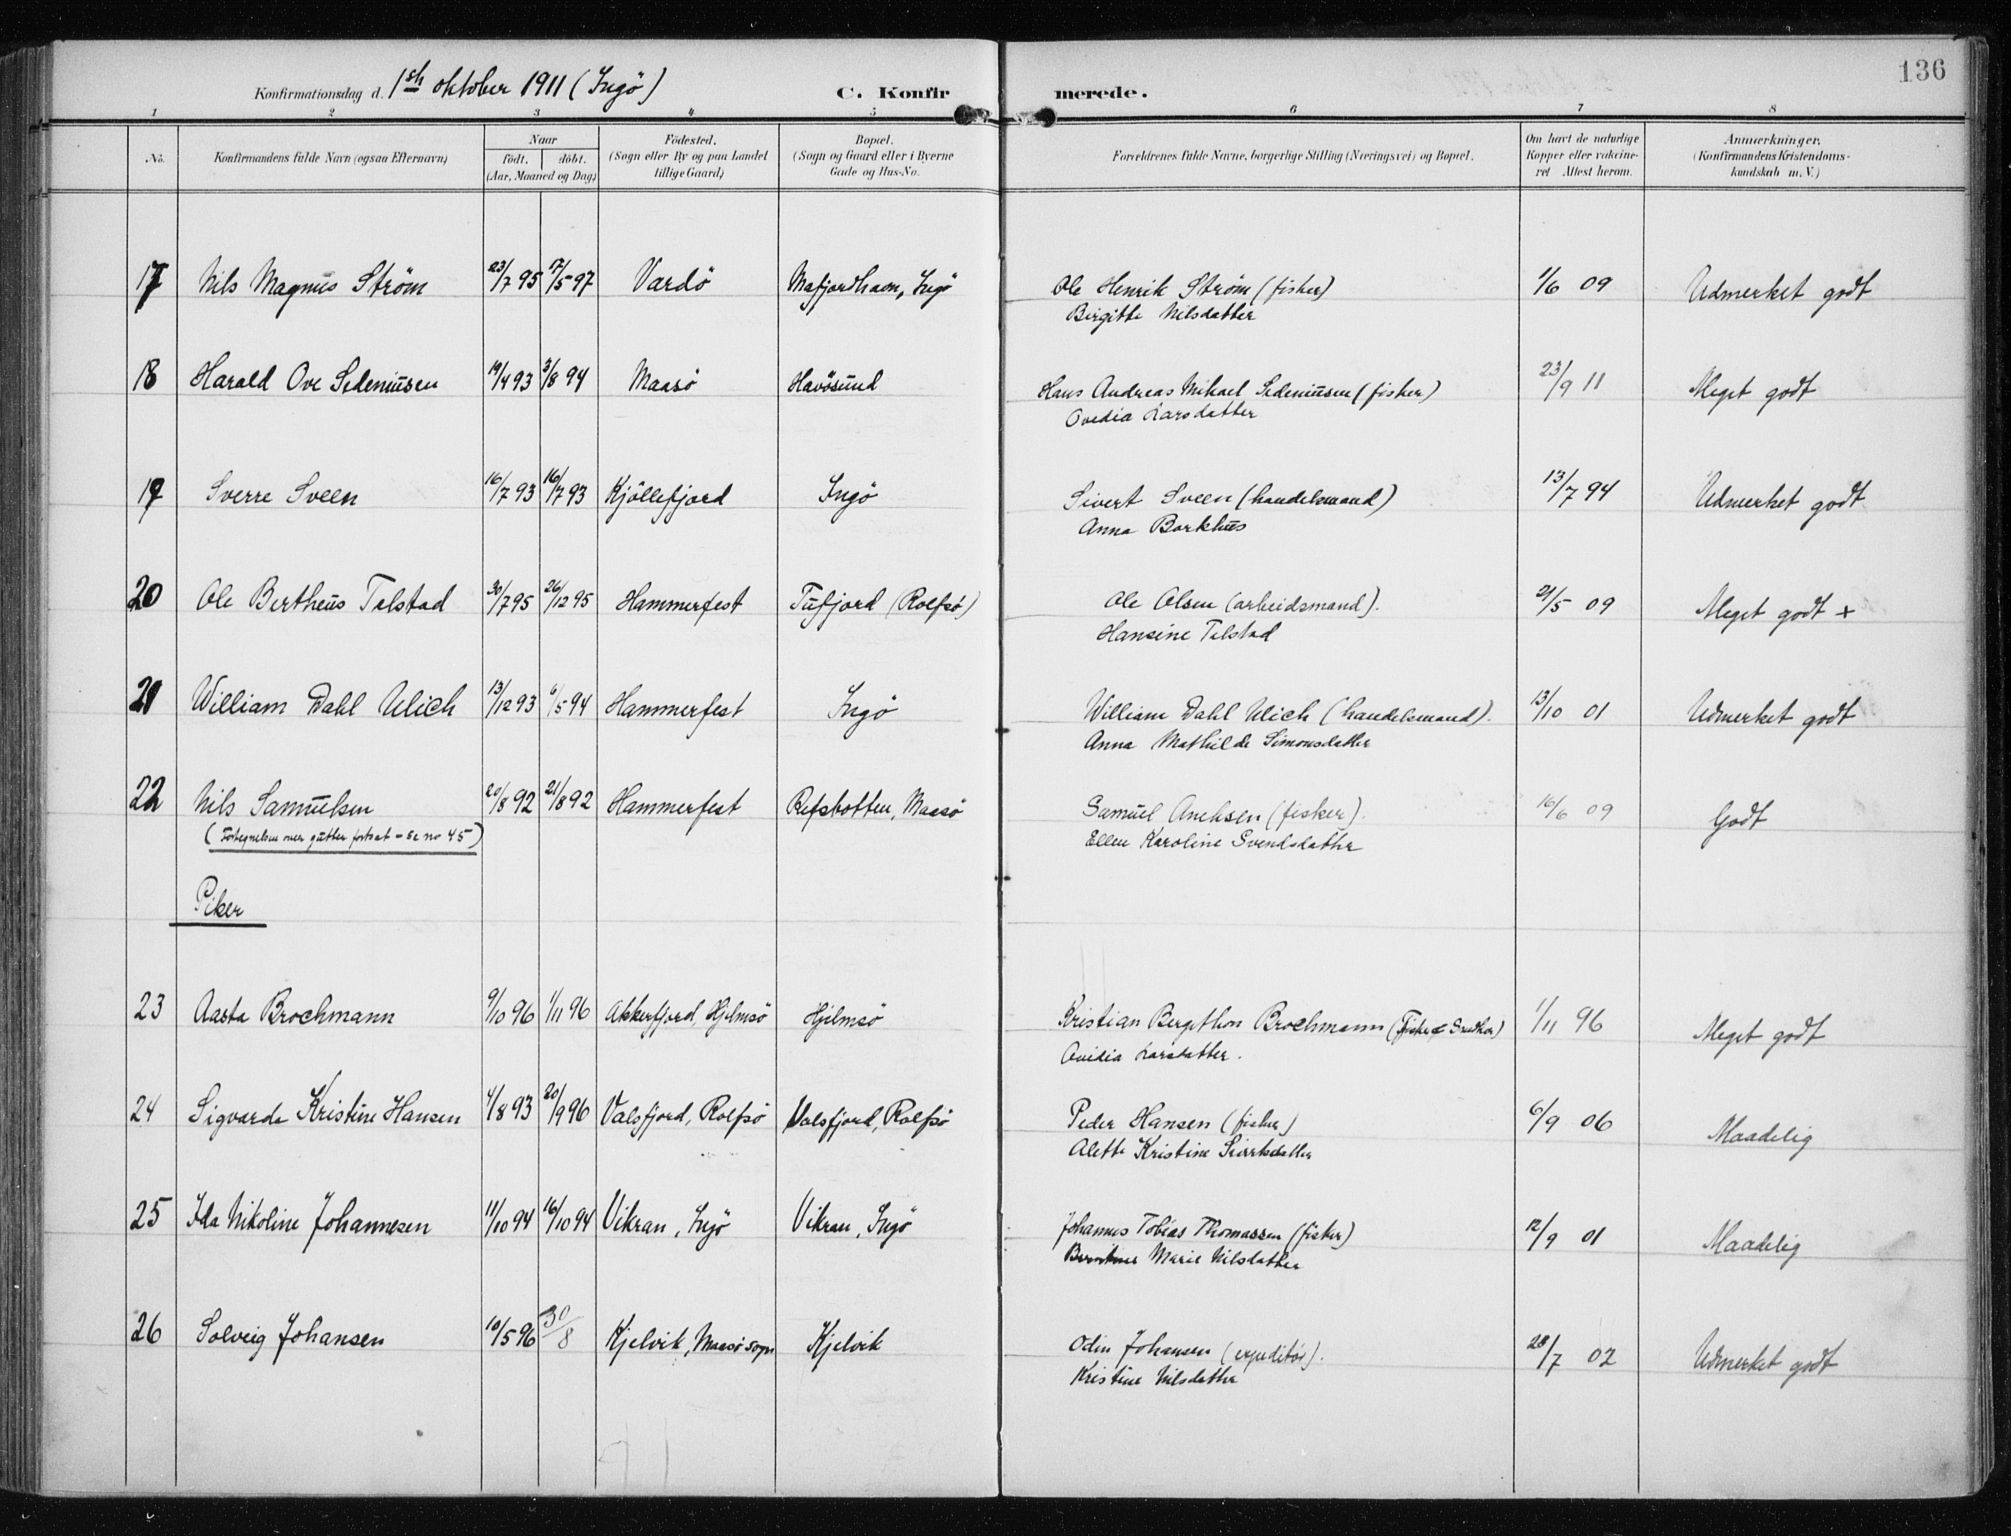 136
Konfirmationsdag d. 1ste oktober 1911 (Ingö)
C. Konfirmerede.
1 2 3 4 5 6 7 8
No. Konfirmandens fulde Navn (ogsaa Efternavn) Naar Födested. Bopæl. Forældrenes fulde Navne, borgerlige Stilling (Næringsvei) og Bopæl. Om havt de naturlige Anmerkninger.
födt. döbt. (Sogn eller By og paa Landet (Sogn og Gaard eller i Byerne Kopper eller vakcine- (Konfirmandens Kristendoms-
(Aar, Maaned og Dag) tillige Gaard) Gade og Hus-No. ret Attest herom. kundskab m. V.)
17 Nils Magnus Ström 23/7 95 17/5 97 Vardö Mafjordhavn, Ingö Ole Henrik Ström (fisker) 1/6 09 Udmerket godt
Birgitte Nilsdatter
18 Harald Ove Sedeniusen 19/4 93 3/8 94 Maasö Havösund Hans Andreas Mikael Sedeniusen (fisker) 23/9 11 Meget godt
Ovedia Larsdatter
19 Sverre Sveen 16/7 93 16/7 93 Kjöllefjord Ingö Sivert Sveen (handelsmand) 13/7 94 Udmerket godt
Anna Borkhus
20 Ole Bertheus Telstad 30/7 95 26/12 95 Hammerfest Tufjord (Rolfsö) Ole Olsen (arbeidsmand). 21/5 09 Meget godt +
Hansine Telstad
21 William Dahl Ulich 13/12 93 6/5 94 Hammerfest Ingö William Dahl Ulich (handelsmand). 13/10 01 Udmerket godt
Anna Mathilde Simonsdatter
22 Nils Samuelsen 20/8 92 21/8 92 Hammerfest Refsbotten, Maasö Samuel (fisker). 16/6 09 Godt
(Fortegnelsen over gutter fortsat - se no 45) Ellen Karoline Svendsdatter
Piker
23 Aasta Brochmann 9/10 96 1/11 96 Akkerfjord, Hjelmsö Hjelmsö Kristian Bergithon Brochmann (Fisker & Snedker) 1/11 96 Meget godt
Ovidia Larsdatter.
24 Sigvarda Kristine Hansen 4/8 93 20/9 96 Valsfjord, Rolfsö Valsfjord, Rolfsö Peder Hansen (fisker) 6/9 06 Maadelig
Alette Kristine
25 Ida Nikoline Johannesen 11/10 94 16/10 94 Vikran, Ingö Vikran, Ingö Johannes Tobias Thomassen (fisker) 12/9 01 Maadelig
Marie Nilsdatter
26 Solveig Johansen 10/5 96 30/8 Kjelvik, Maasö sogn Kjelvik Odin Johansen (expeditör). 28/7 02 Udmerket godt
Kristine Nilsdatter